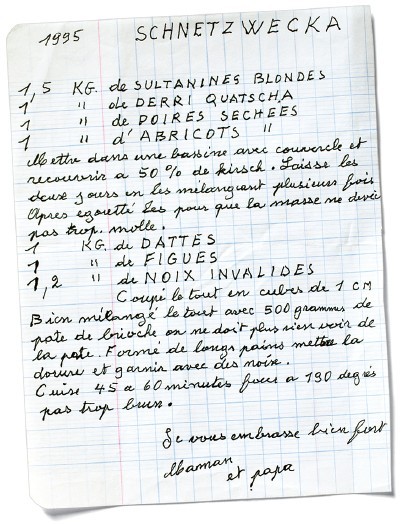 1995 SCHNETZWECKA
1,5 KG. de SULTANINES BLONDES
1 " de DERRI QUATSCHA
1 " de POIRES SECHÉES
1 " d'ABRICOTS "
Mettre dans une bassine avec couvercle et
recouvrir a 50% de kirsch. Laisse les
deux jours en les mélangeant plusieurs fois
Apres egoretté les pour que la masse ne devie
pas trop. molle.
1 KG. de DATTES
1 " de FIGUES
1,2 " de NOIX INVALIDES
Coupé le tout en cubes de 1 CM
Bien mélangé le tout avec 500 gramms de
pate de brioche on ne doit plus rien voir de
la pate. Formé de longs pains mettre la
dorure et garnir avec des noix.
Cuire 45 a 60 minutes four a 190 degrés
pas trop brun.
Je vous embrasse bien fort
Maman
et papa